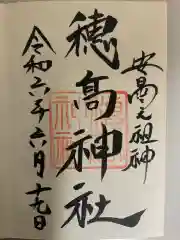 安曇之祖神
穂高神社
令和六年六月十九日